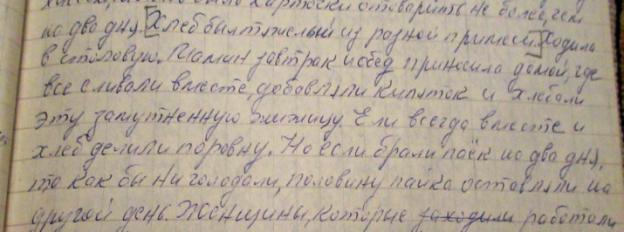 можно было карточки отоварить не более, чем
на два дня. Хлеб был тяжелый из разной примеси. Ходила
в столовую. Мамин завтрак и обед приносила домой, где
все сливали вместе, добавляли кипяток и хлебали
эту замутненную жижицу. Ели всегда вместе и
хлеб делили поровну. Но если брали паёк на два дня,
то как бы ни голодали, половину пайка оставляли на
другой день. Женщины, которые заходили работали